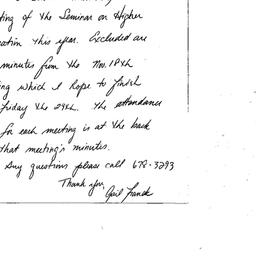 ting of the Seminar on Higher
cation this year. Excluded are
minutes from the Nov. 18th
ing which I hope to finish
Friday the 29th. The attendance
for each meeting is at the back
that meeting's minutes.
Any questions please call 678-3293
Thank you,
Gail Franck